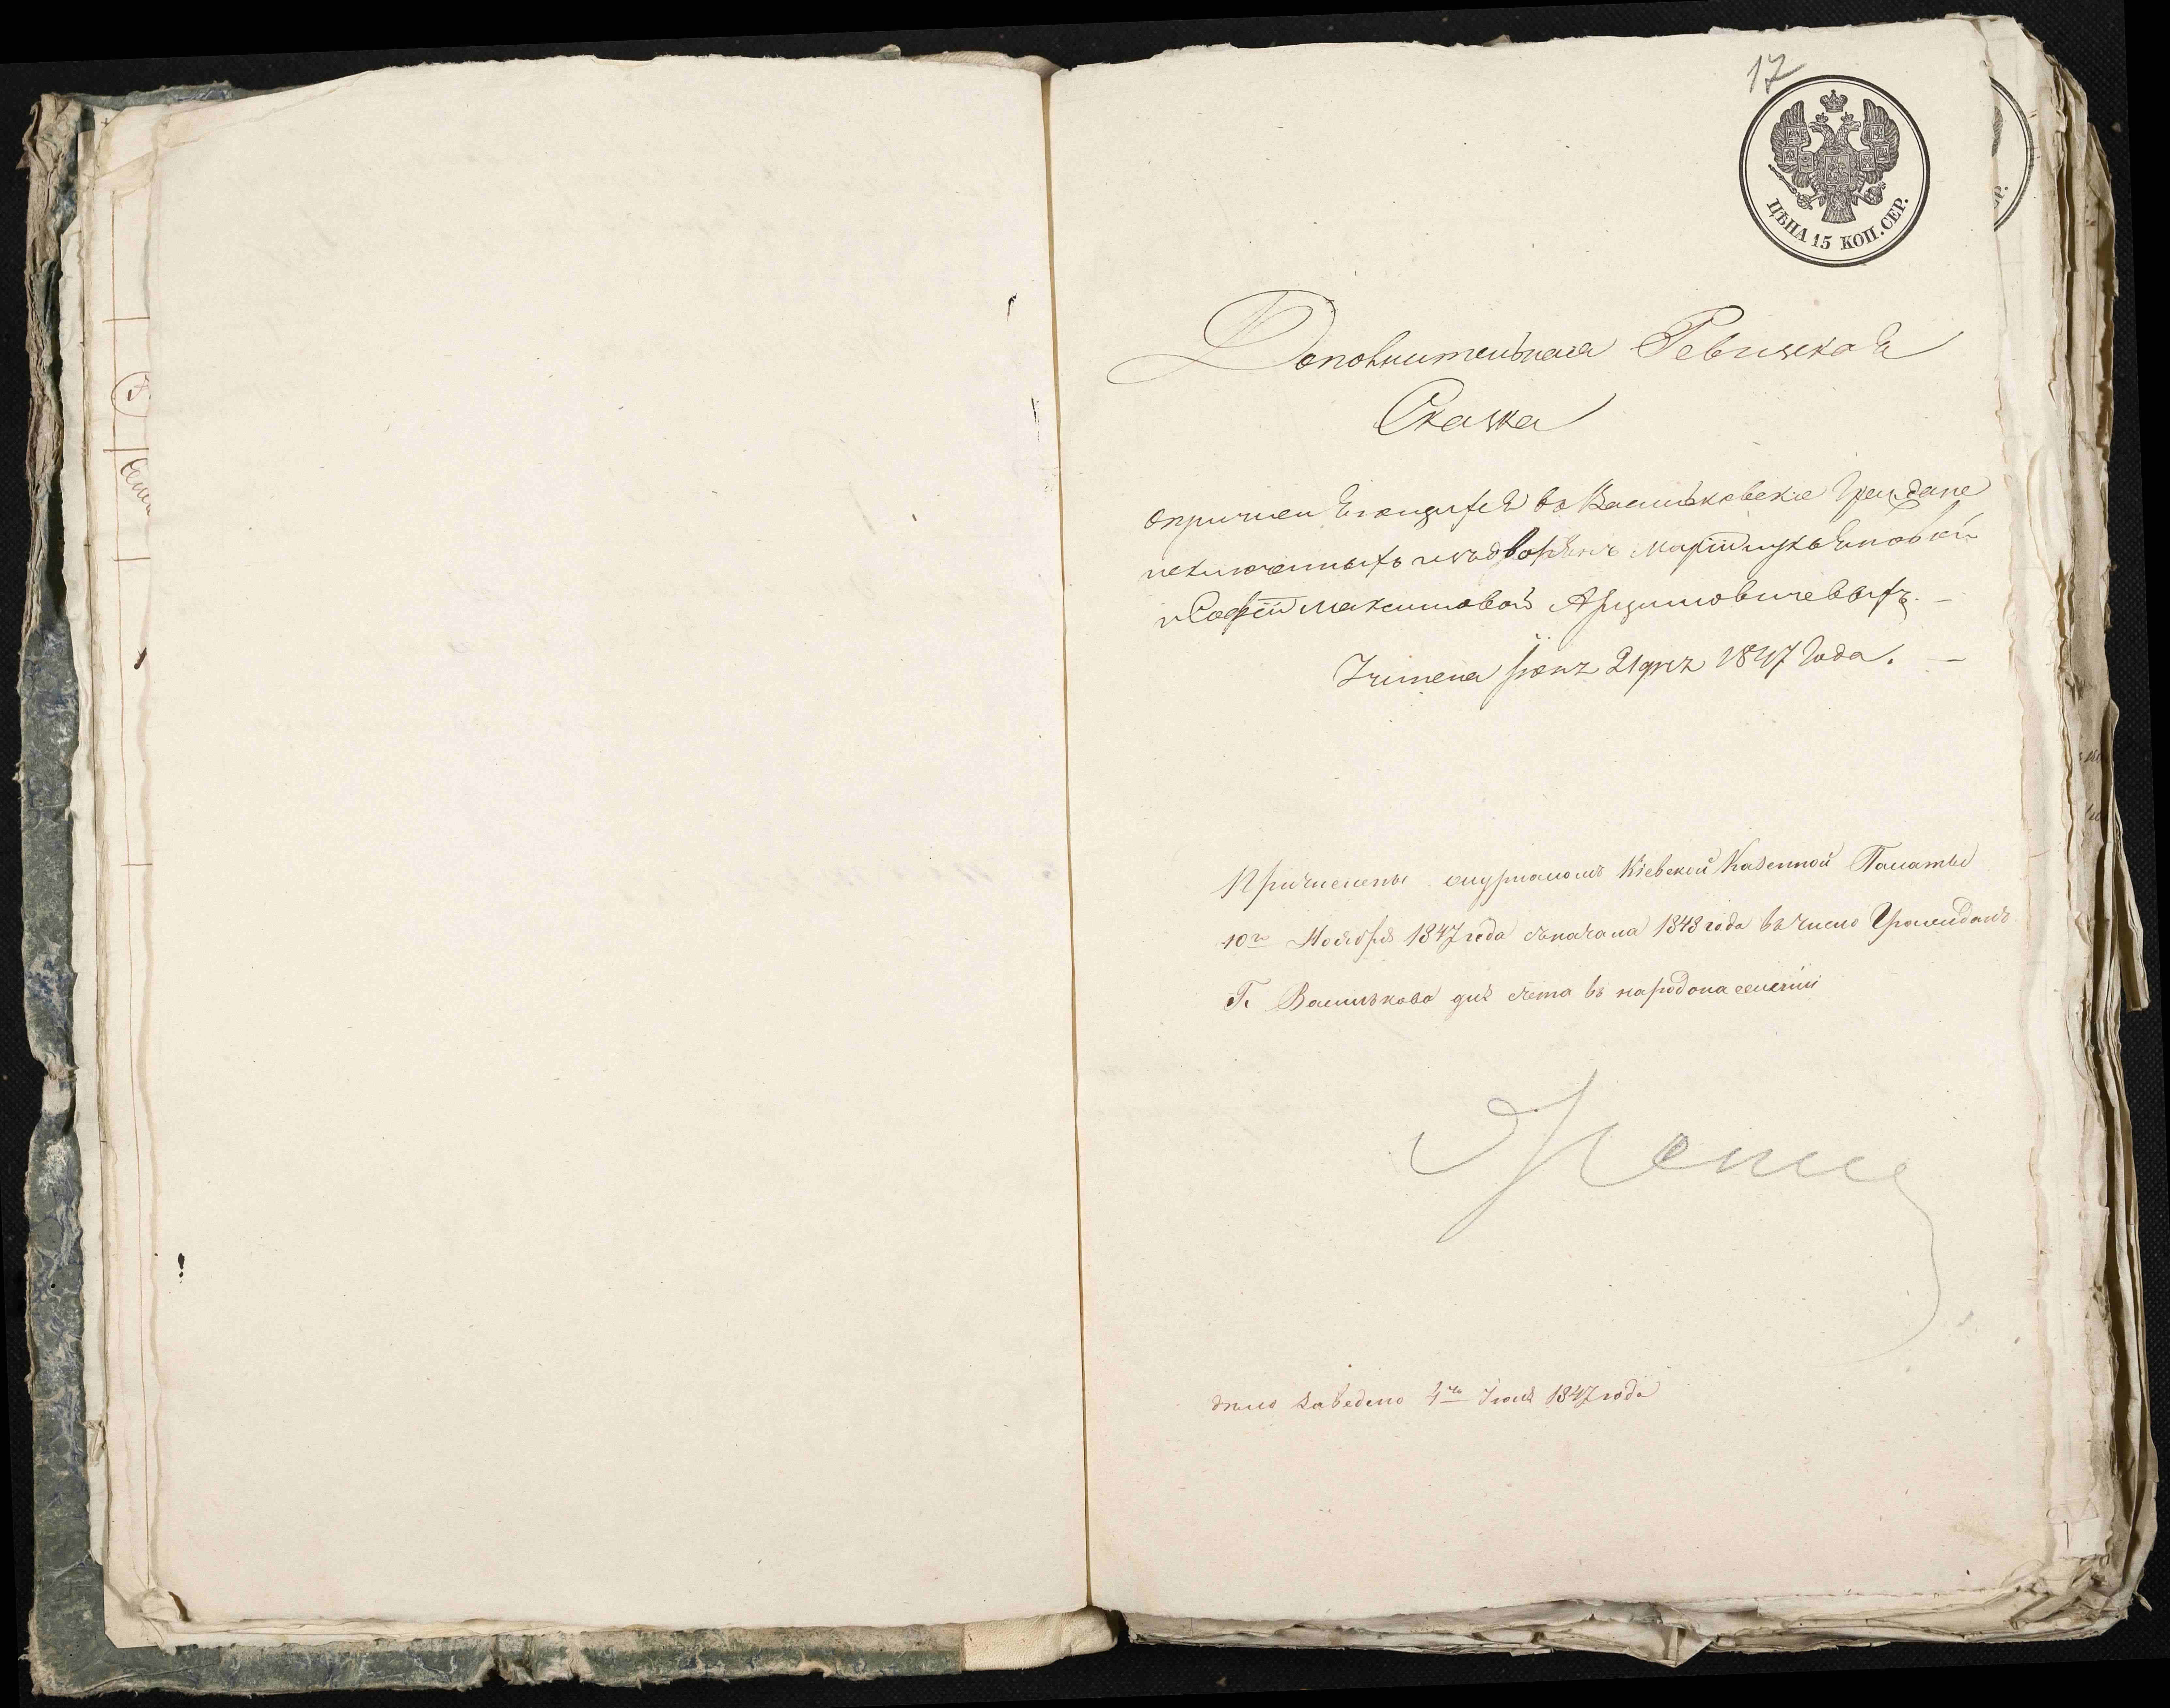 17
ЦѢНА 15 КОП. СЕР.
Дополнительная Ревизская
Сказка
о причисляющихся въ Васильковские Граждане
исключенныхъ изъ дворянъ Маріи Лукьяновой
и Софіи Максимовой Арцимовичевыхъ. —
Іюня 21 дня 1847 Года. —
Причислены журналомъ Кіевской Казенной Палаты
10го Ноября 1847 года съ начала 1848 года въ число Гражданъ
Г. Василькова для счета въ народонаселеніи
дѣло заведено 4го Іюля 1847 года